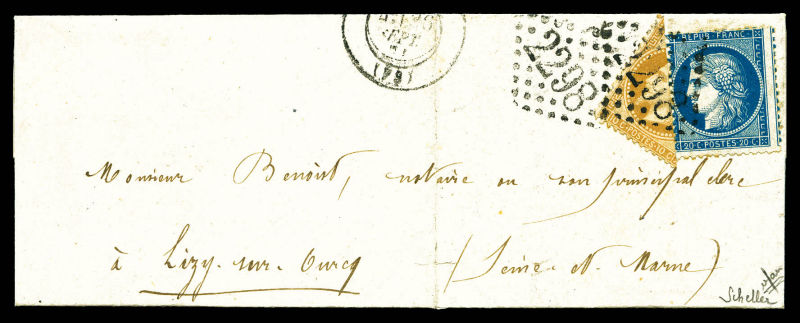 SEPT.
71
2298
2298
REPUB. FRANC.
20 C. POSTES 20 C.
Monsieur Benoist, notaire ou son principal clerc
à Lizy-sur-Ourcq (Seine-et-Marne)
Scheller